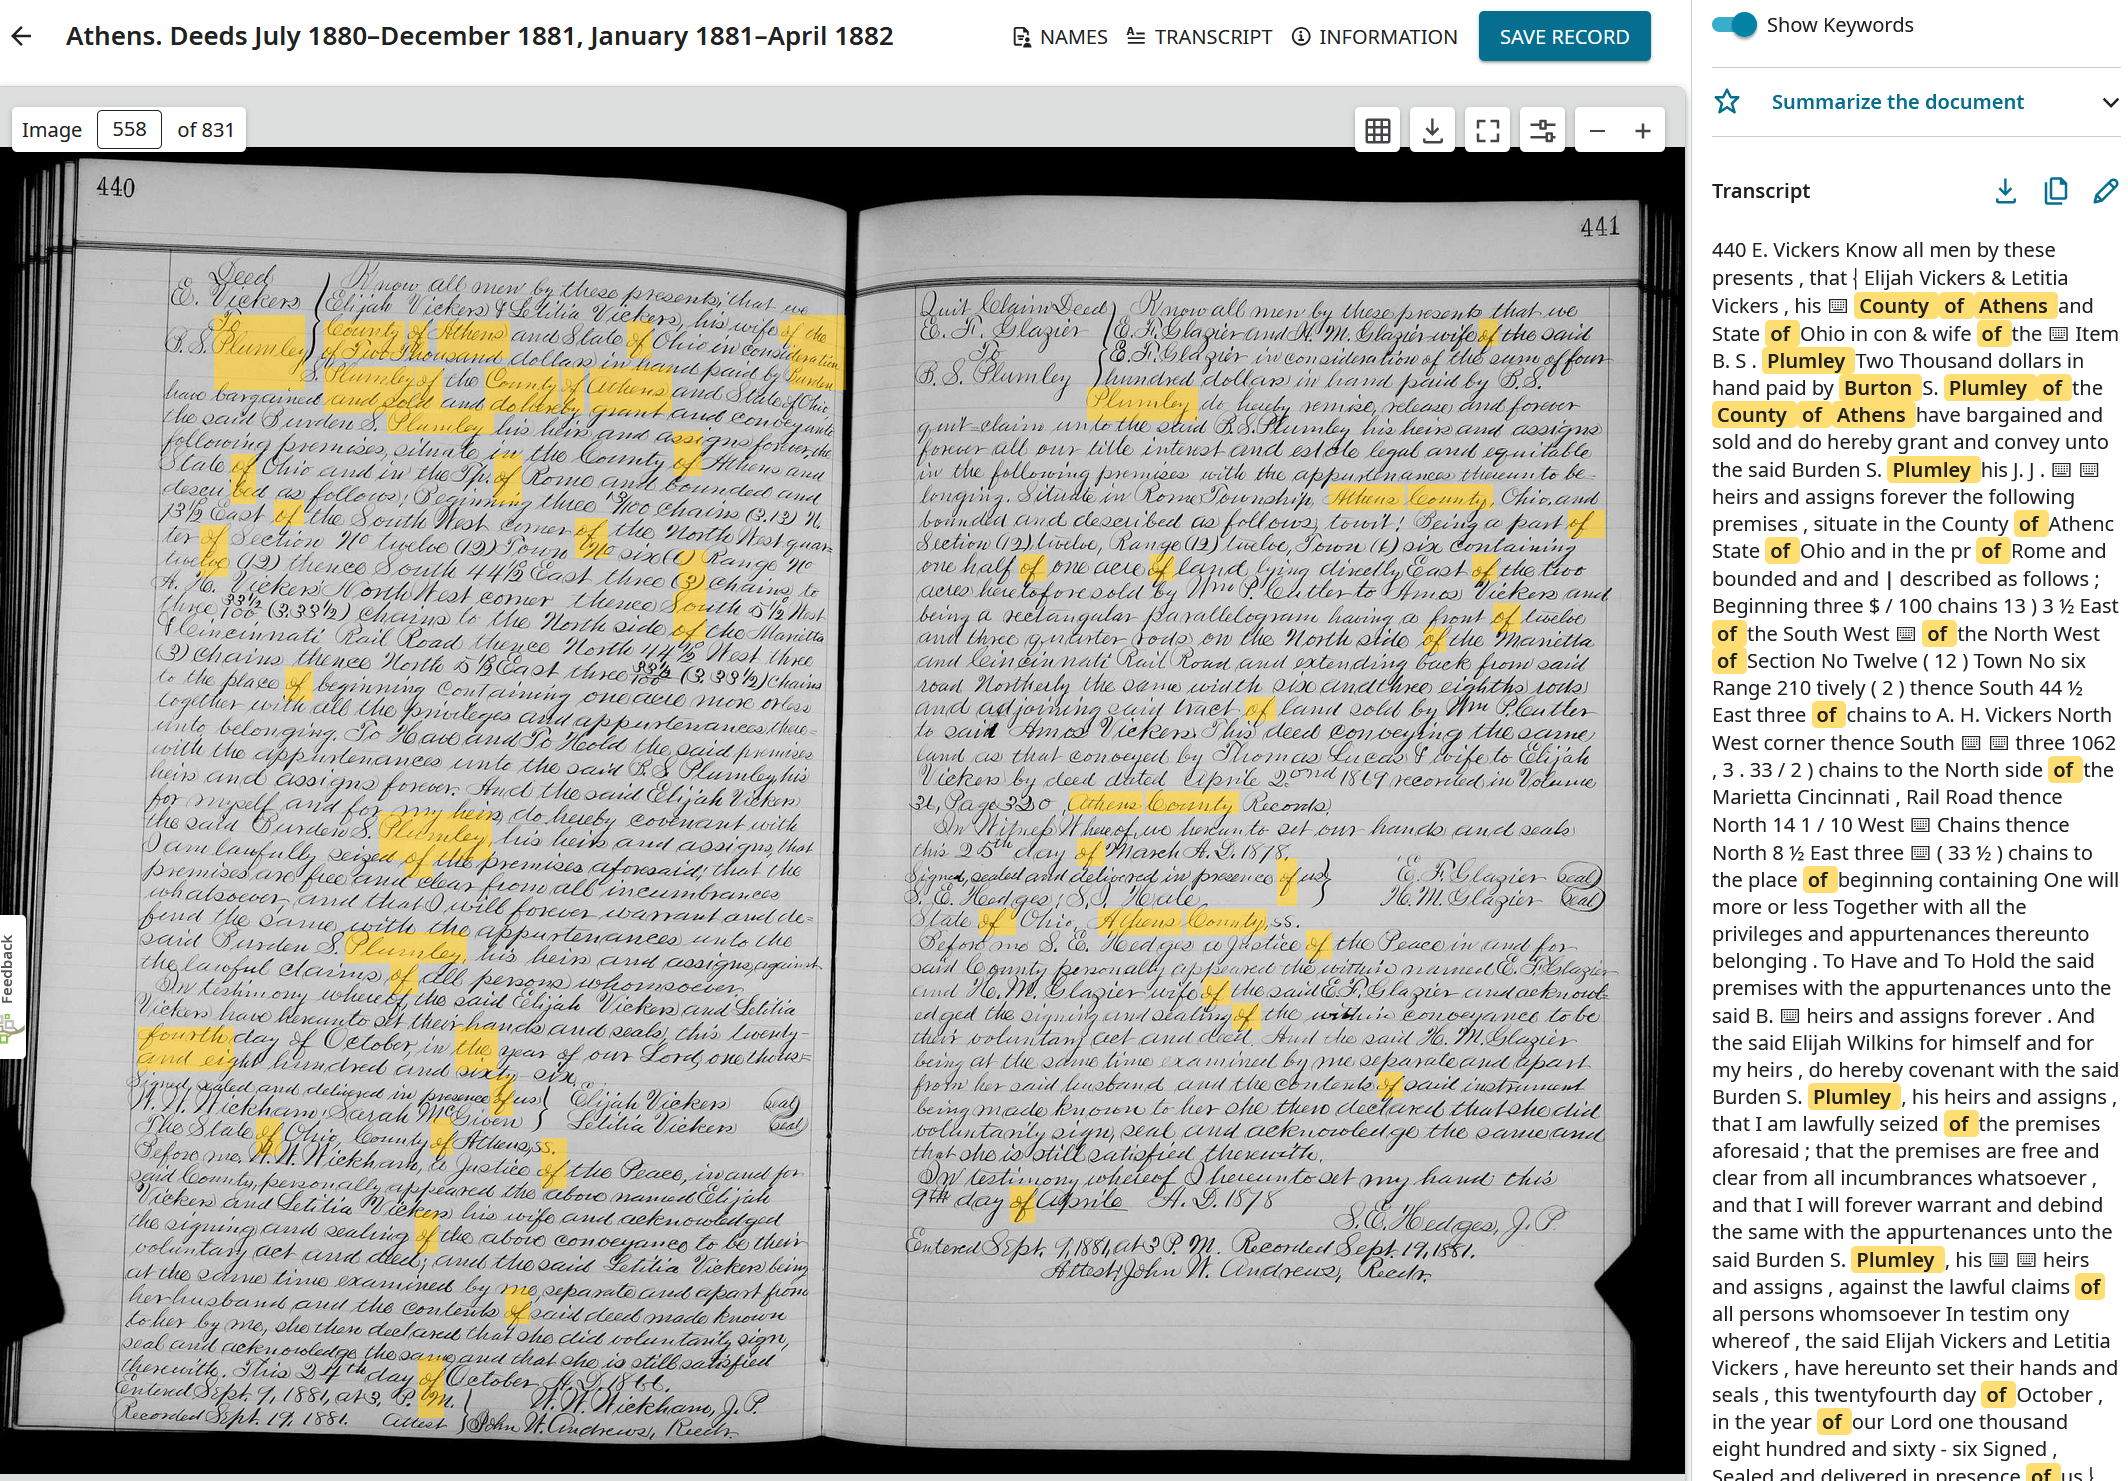 Athens. Deeds July 1880–December 1881, January 1881–April 1882
NAMES
TRANSCRIPT
INFORMATION
SAVE RECORD
Image 558 of 831
Feedback
440
Deed
E. Vickers
To
B. S. Plumley
Know all men by these presents; that we
Elijah Vickers & Letitia Vickers, his wife of the
County of Athens and State of Ohio in consideration
of Two Thousand dollars in hand paid by Burden
S. Plumley of the County of Athens and State of Ohio,
have bargained and sold and do hereby grant and convey unto
the said Burden S. Plumley his heirs and assigns forever, the
following premises, situate in the County of Athens and
State of Ohio and in the Tp. of Rome and bounded and
described as follows; Beginning three 13/100 chains (3.13) N.
13½ East of the South West corner of the North West quar-
ter of Section No twelve (12) Town No six (6) Range No
twelve (12) thence South 44½ East three (3) chains, to
A. H. Vickers North West corner thence South 5½ West
three 33½/100 (3.33½) chains to the North side of the Marietta
& Cincinnati Rail Road thence North 44½ West three
(3) chains thence North 5½ East three 33½/100 (3.33½) chains
to the place of beginning containing one acre more or less
together with all the privileges and appurtenances there-
unto belonging. To Have and To Hold the said premises
with the appurtenances unto the said B. S. Plumley, his
heirs and assigns forever. And the said Elijah Vickers
for myself and for my heirs, do hereby covenant with
the said Burden S. Plumley, his heirs and assigns, that
I am lawfully seized of the premises aforesaid; that the
premises are free and clear from all incumbrances
whatsoever, and that I will forever warrant and de-
fend the same with the appurtenances unto the
said Burden S. Plumley, his heirs and assigns, against
the lawful claims of all persons whomsoever
In testimony whereof, the said Elijah Vickers and Letitia
Vickers have hereunto set their hands and seals, this twenty-
fourth day of October, in the year of our Lord, one thous=
and eight hundred and sixty-six,
Signed, sealed and delivered in presence of us
W. W. Wickham, Sarah McGiven
Elijah Vickers (seal)
Letitia Vickers (seal)
The State of Ohio, County of Athens, ss.
Before me. W. W. Wickham, a Justice of the Peace, in and for
said County, personally appeared the above named Elijah
Vickers and Letitia Vickers his wife and acknowledged
the signing and sealing of the above conveyance to be their
voluntary act and deed; and the said Letitia Vickers being
at the same time examined by me, separate and apart from
her husband and the contents of said deed made known
to her by me, she then declared that she did voluntarily sign,
seal and acknowledge the same, and that she is still satisfied
therewith. This 24th day of October A.D. 1866.
Entered Sept. 9, 1881, at 3, P. M.
W. W. Wickham, J. P.
Recorded Sept. 19, 1881. attest John W. Andrews, Recdr.
441
Quit Claim Deed
E. F. Glazier
To
B. S. Plumley
Know all men by these presents that we
E. F. Glazier and H. M. Glazier wife of the said
E. F. Glazier in consideration of the sum of four
hundred dollars in hand paid by B. S.
Plumley do hereby remise, release and forever
quit-claim unto the said B. S. Plumley his heirs and assigns
forever all our title interest and estate legal and equitable
in the following premises with the appurtenances thereunto be-
longing. Situate in Rome Township, Athens County, Ohio, and
bounded and described as follows, towit: Being a part of
Section (12) twelve, Range (12) twelve, Town (6) six containing
one half of one acre of land lying directly East of the two
acres heretofore sold by Wm P. Cutler to Amos Vickers and
being a rectangular parallelogram having a front of twelve
and three quarter rods on the North side of the Marietta
and Cincinnati Rail Road and extending back from said
road Northerly the same width six and three eighths rods
and adjoining said tract of land sold by Wm P. Cutler
to said Amos Vickers This deed conveying the same
land as that conveyed by Thomas Lucas & wife to Elijah
Vickers by deed dated Aprile 2nd 1869 recorded in Volume
31, Page 320, Athens County Records,
In Witness Whereof, we hereunto set our hands and seals
this 25th day of March A. D. 1878.
Signed, sealed and delivered in presence of us
S. E. Hedges; S. J. Hale,
E. F. Glazier (seal)
H. M. Glazier (seal)
State of Ohio, Athens County, ss.
Before me S. E. Hedges a Justice of the Peace in and for
said County personally appeared the within named E. F. Glazier
and H. M. Glazier wife of the said E. F. Glazier and acknowl-
edged the signing and sealing of the within conveyance to be
their voluntary act and deed. And the said H. M. Glazier
being at the same time examined by me separate and apart
from her said husband and the contents of said instrument
being made known to her she then declared that she did
voluntarily sign, seal and acknowledge the same and
that she is still satisfied therewith,
In testimony whereof I hereunto set my hand this
9th day of Aprile A. D. 1878
S. E. Hedges, J. P.
Entered Sept. 9, 1881, at 3 P. M. Recorded Sept. 19, 1881.
Attest John W. Andrews, Recdr.
Show Keywords
Summarize the document
Transcript
440 E. Vickers Know all men by these
presents , that ⎨ Elijah Vickers & Letitia
Vickers , his County of Athens and
State of Ohio in con & wife of the Item
B. S . Plumley Two Thousand dollars in
hand paid by Burton S. Plumley of the
County of Athens have bargained and
sold and do hereby grant and convey unto
the said Burden S. Plumley his J. J .
heirs and assigns forever the following
premises , situate in the County of Athenc
State of Ohio and in the pr of Rome and
bounded and and | described as follows ;
Beginning three $ / 100 chains 13 ) 3 ½ East
of the South West of the North West
of Section No Twelve ( 12 ) Town No six
Range 210 tively ( 2 ) thence South 44 ½
East three of chains to A. H. Vickers North
West corner thence South three 1062
, 3 . 33 / 2 ) chains to the North side of the
Marietta Cincinnati , Rail Road thence
North 14 1 / 10 West Chains thence
North 8 ½ East three ( 33 ½ ) chains to
the place of beginning containing One will
more or less Together with all the
privileges and appurtenances thereunto
belonging . To Have and To Hold the said
premises with the appurtenances unto the
said B. heirs and assigns forever . And
the said Elijah Wilkins for himself and for
my heirs , do hereby covenant with the said
Burden S. Plumley , his heirs and assigns ,
that I am lawfully seized of the premises
aforesaid ; that the premises are free and
clear from all incumbrances whatsoever ,
and that I will forever warrant and debind
the same with the appurtenances unto the
said Burden S. Plumley , his heirs
and assigns , against the lawful claims of
all persons whomsoever In testim ony
whereof , the said Elijah Vickers and Letitia
Vickers , have hereunto set their hands and
seals , this twentyfourth day of October ,
in the year of our Lord one thousand
eight hundred and sixty - six Signed ,
Sealed and delivered in presence of us ⎨